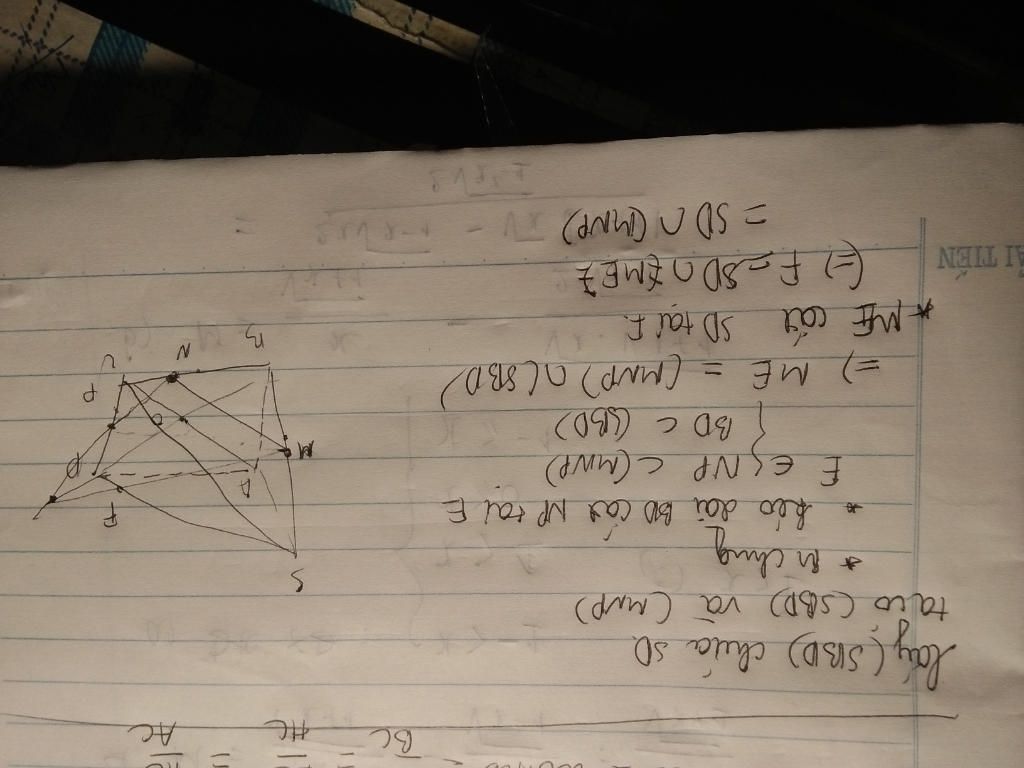 BC HC AC
Lấy (SBD) chứa SD.
ta có (SBD) và (MNP)
* M chung
* kéo dài BD cắt NP tại E
E ∈ { NP ⊂ (MNP)
BD ⊂ (SBD)
=) ME = (MNP) ∩ (SBD)
* ME cắt SD tại F.
(=) F = SD ∩ {ME}
= SD ∩ (MNP)
S
F
A
M
P
C
N
B
ẢI TIẾN